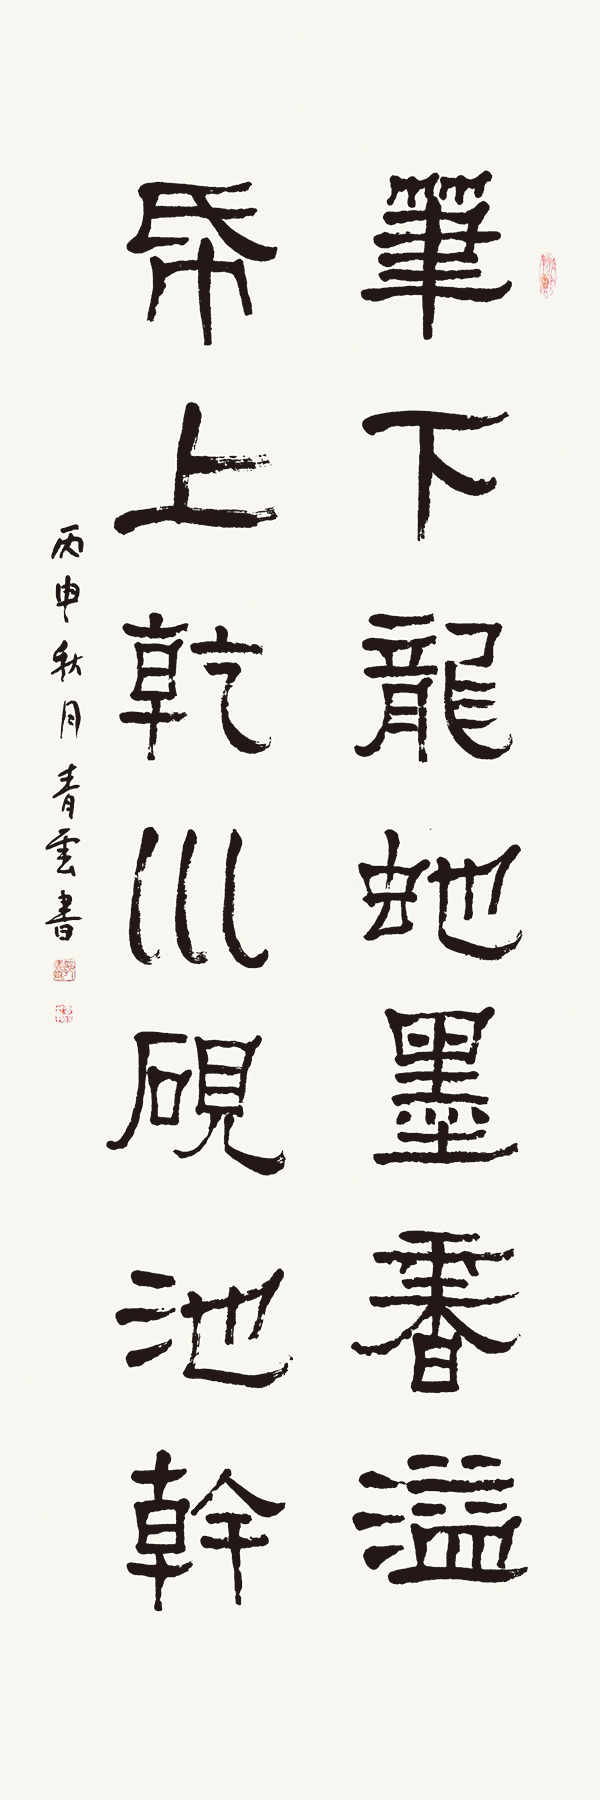 筆下龍虵墨香溢
帋上乾川硯池幹
丙申秋月青雲書